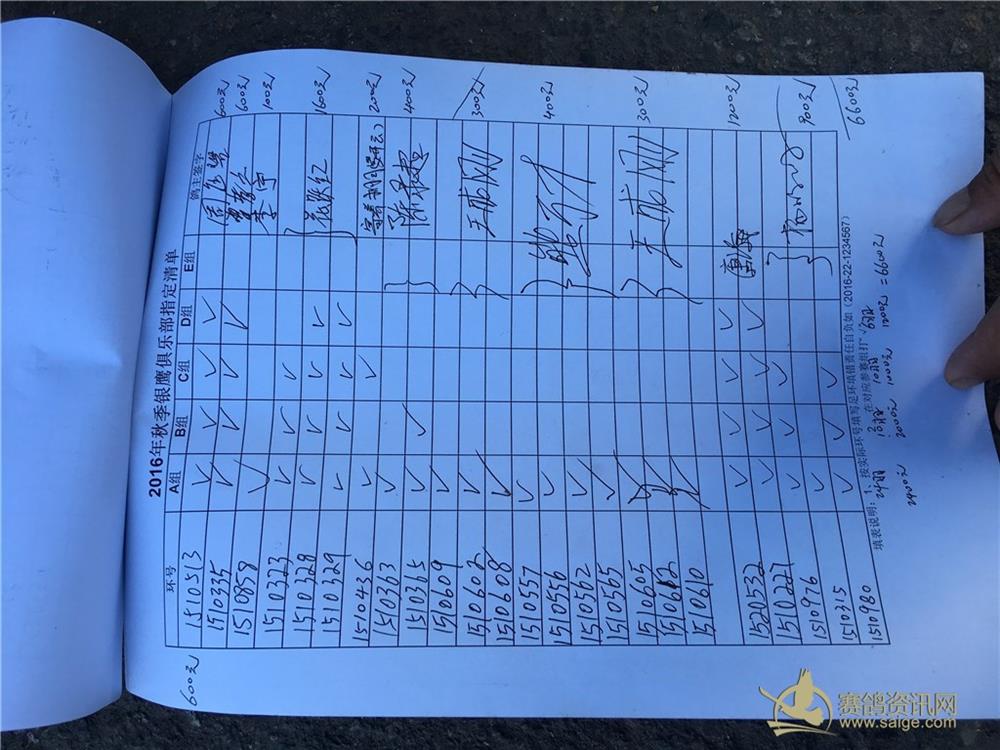 2016年秋季银鹰俱乐部指定清单
环号 A组 B组 C组 D组 E组 鸽主签字
1510513 √ √ √ √ 600元
1510335 √ √ √ √ 600元
1510858 √ 李宁 100元
1510323 √ √ √
1510328 √ √ √ √ 1600元
1510329 √ √ √ √
1510436 √ √ 200元
1510363 √
1510365 √ √ 400元
1510609 √
1510602 √ 300元
1510608 √
1510557 √
1510556 √ 400元
1510562 √
1510565 √
1510605 √ 300元
1510612 √
1510610 √
1520532 √ √ √ √ 1200元
1510227 √ √ √ √
1510976 √ √ √ 900元
1510315 √
1510980 √ √ √
6600元
600元
填表说明：1、按实际环号填写足环填错责任自负如（2016-22-1234567）
2、在对应参赛组打“√
24羽 10羽 10羽 6羽
2400元 2000元 1000元 1200元 =6600元
赛鸽资讯网
www.saige.com